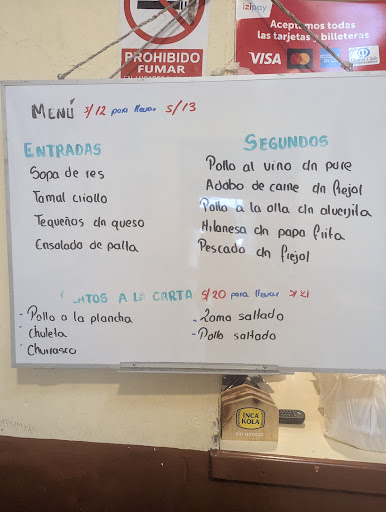 PROHIBIDO
FUMAR
izipay
Aceptamos todas
las tarjetas y billeteras
VISA
Diners Club
MENÚ s/12 para llevar s/13
ENTRADAS
Sopa de res
Tamal criollo
Tequeños cn queso
Ensalada de palta
SEGUNDOS
Pollo al vino cn pure
Adobo de carne cn frejol
Pollo a la olla cn alverjita
Milanesa cn papa frita
Pescado cn frejol
PLATOS A LA CARTA s/20 para llevar s/21
- Pollo a la plancha
- Chuleta
- Churrasco
- Lomo saltado
- Pollo saltado
INCA
KOLA